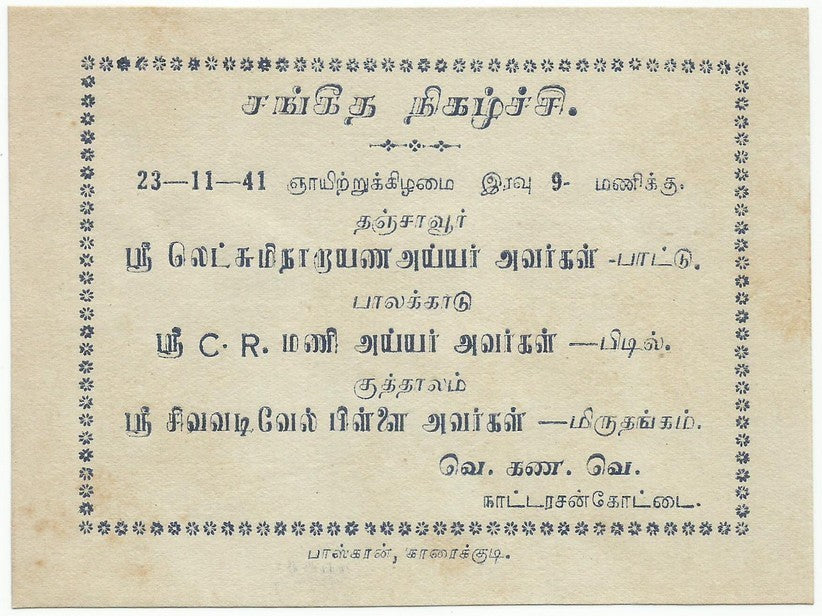 சங்கீத நிகழ்ச்சி.
23—11—41 ஞாயிற்றுக்கிழமை இரவு 9- மணிக்கு.
தஞ்சாவூர்
ஸ்ரீ லெட்சுமிநாராயண அய்யர் அவர்கள் -பாட்டு.
பாலக்காடு
ஸ்ரீ C. R. மணி அய்யர் அவர்கள் —பிடில்.
குத்தாலம்
ஸ்ரீ சிவவடிவேல் பிள்ளை அவர்கள் —மிருதங்கம்.
வெ. கண. வெ.
நாட்டரசன்கோட்டை.
பாஸ்கரன், காரைக்குடி.